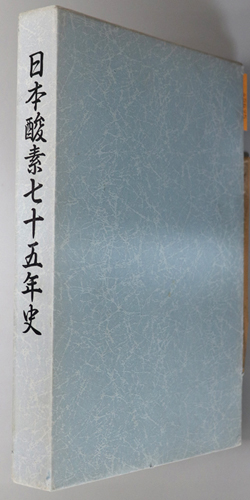 日本酸素七十五年史